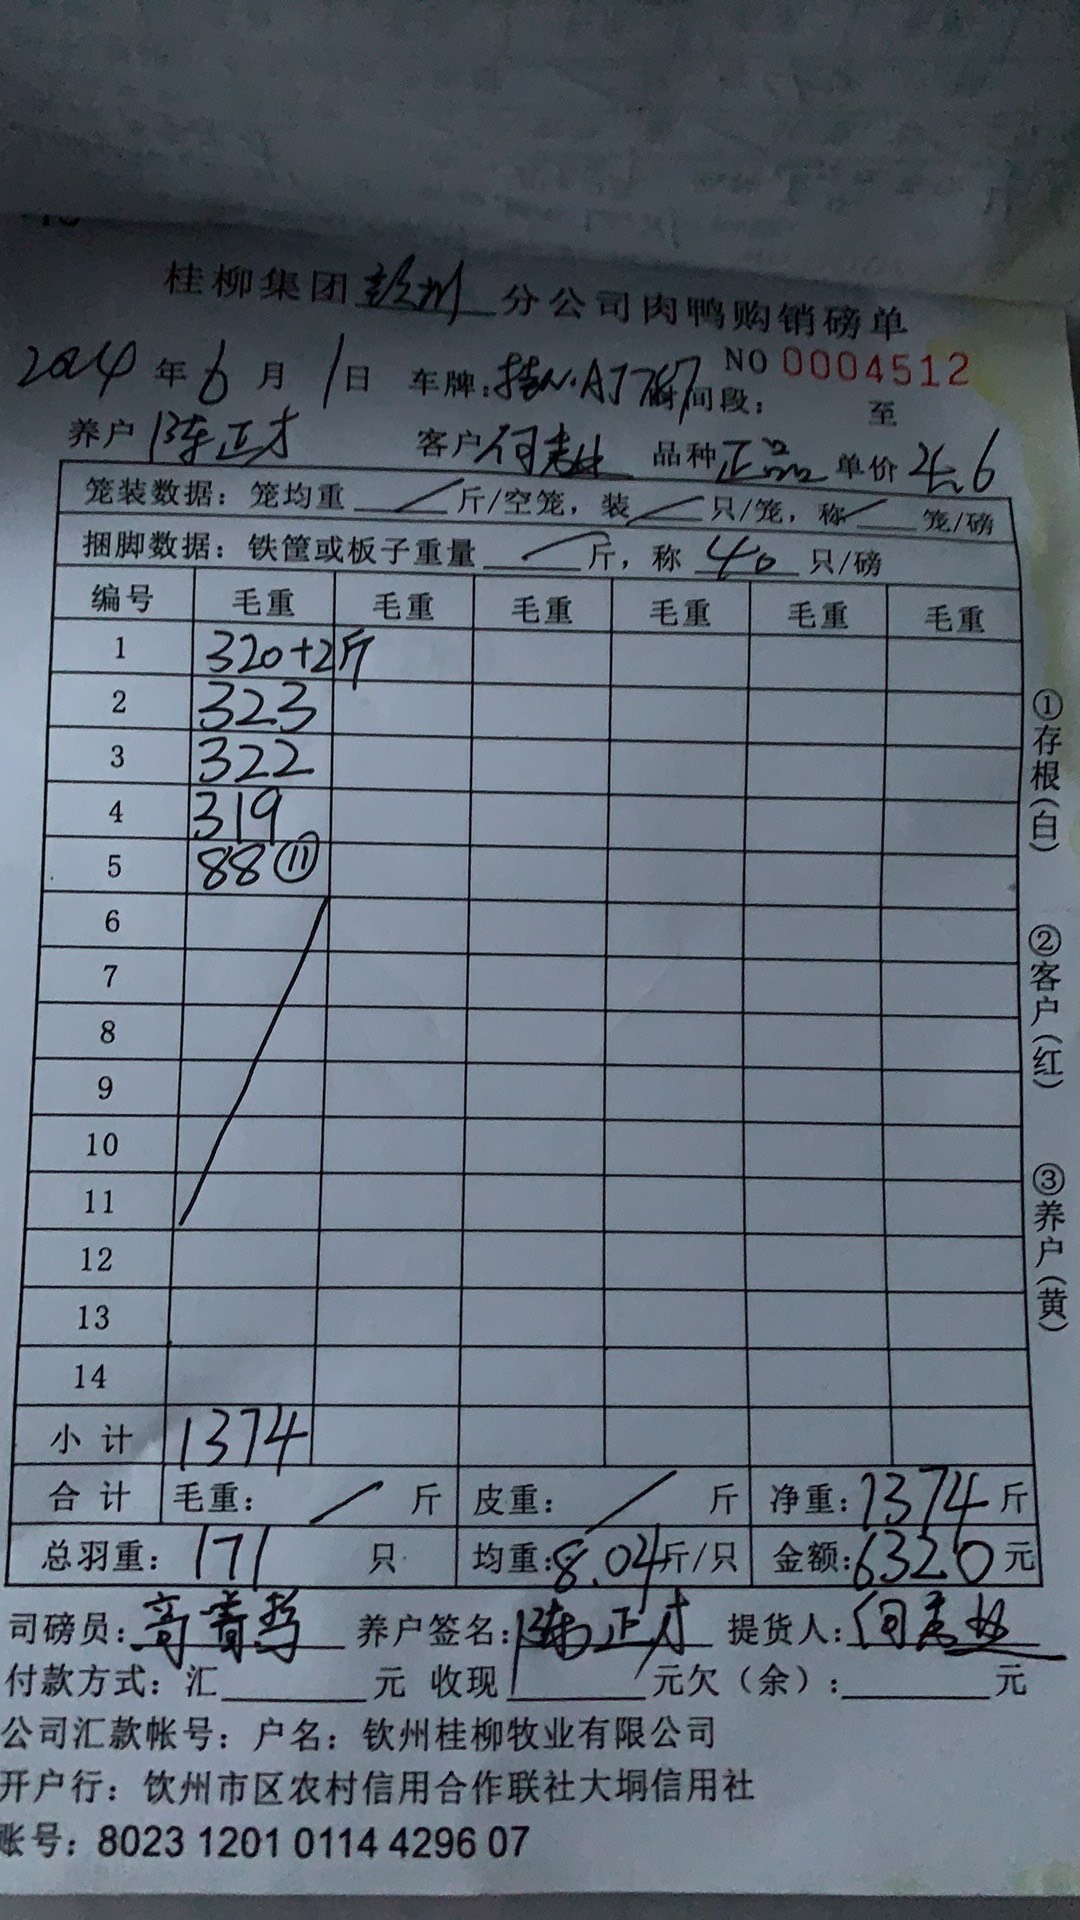 桂柳集团钦州分公司肉鸭购销磅单
NO 0004512
2024年6月1日 车牌: 时间段: 至
养户 陈正才 客户 何 品种 正品 单价 4.6
笼装数据: 笼均重 / 斤/空笼, 装 / 只/笼, 称 / 笼/磅
捆脚数据: 铁筐或板子重量 / 斤, 称 40 只/磅
编号 毛重 毛重 毛重 毛重 毛重 毛重
1 320+2斤
2 323
3 322
4 319
5 88 ⑪
6
7
8
9
10
11
12
13
14
小计 1374
合计 毛重: / 斤 皮重: / 斤 净重: 1374 斤
总羽重: 171 只 均重: 8.04 斤/只 金额: 6320 元
司磅员: 养户签名: 陈正才 提货人: 何
付款方式: 汇 元 收现 元欠(余): 元
公司汇款帐号: 户名: 钦州桂柳牧业有限公司
开户行: 钦州市区农村信用合作联社大垌信用社
账号: 8023 1201 0114 4296 07
①存根(白)
②客户(红)
③养户(黄)